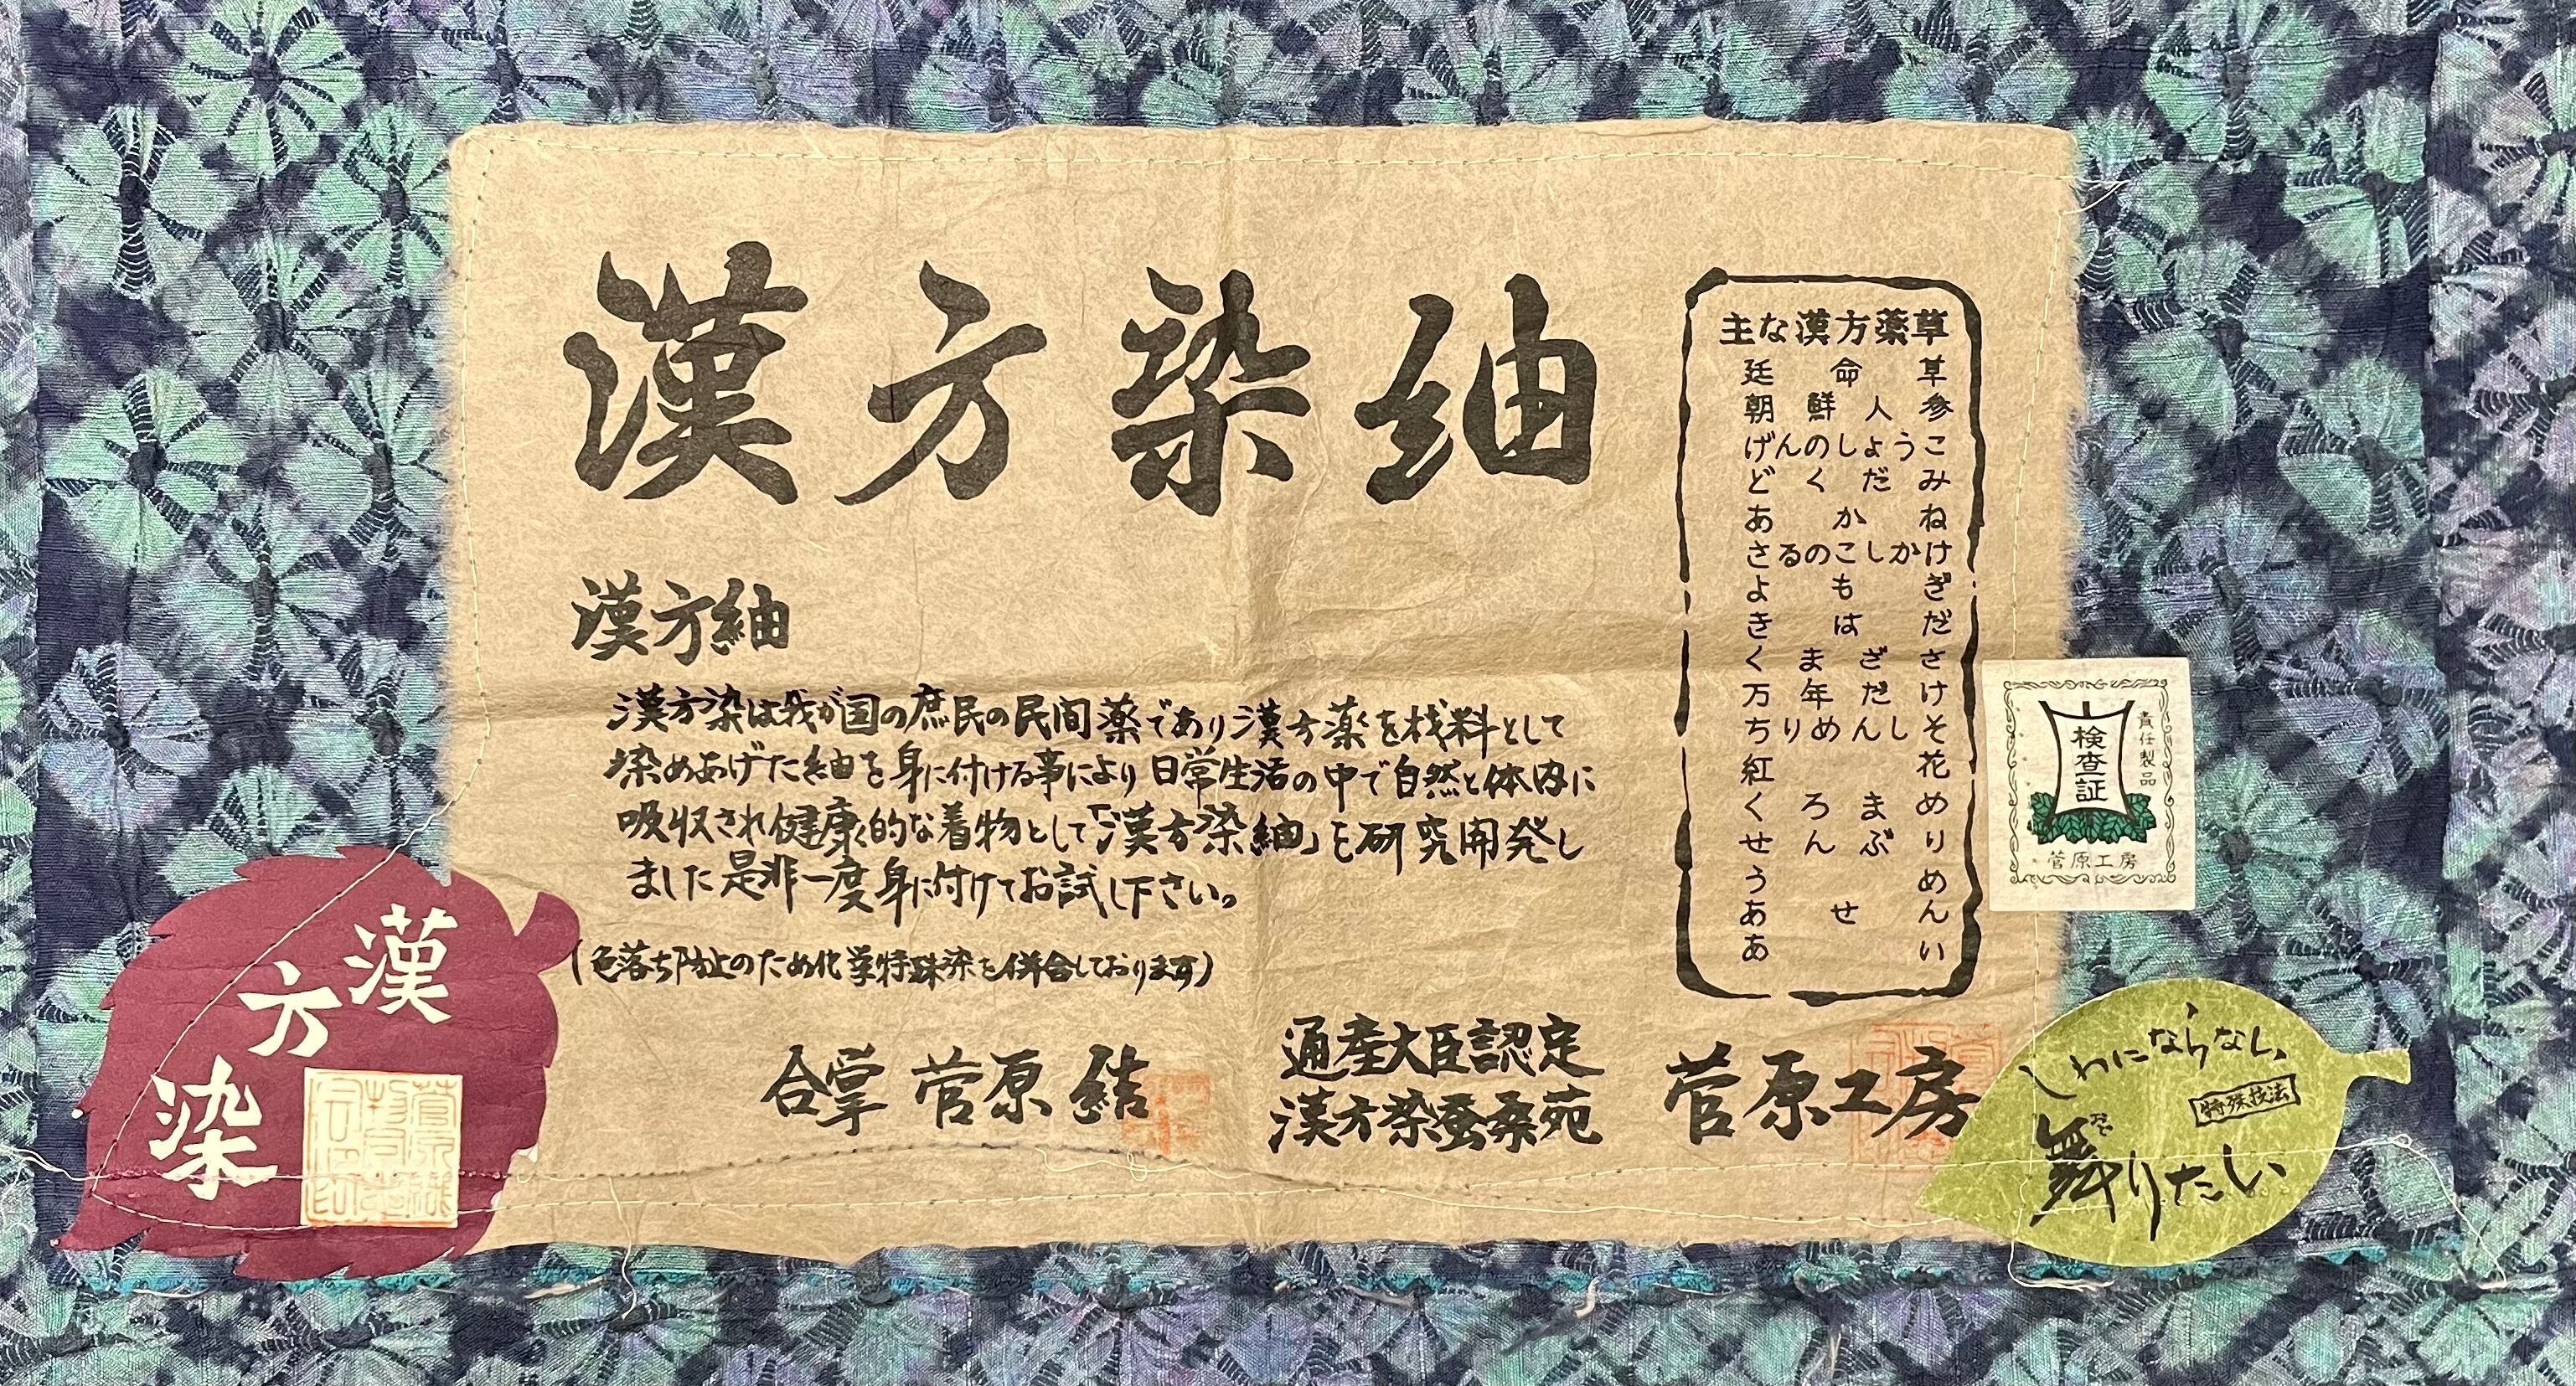 漢方染紬
漢方紬
漢方染は我が国の庶民の民間薬であり漢方薬を材料として
染めあげた紬を身に付ける事により日常生活の中で自然と体内に
吸収され健康的な着物として「漢方染紬」を研究開発し
ました是非一度身に付けてお試し下さい。
(色落ち防止のため化学特殊染を併合しております)
合掌 菅原 結
通産大臣認定
漢方染蚕桑苑
菅原工房
主な漢方薬草
延命草
朝鮮人参
げんのしょうこ
どくだみ
あかね
さるのこしかけ
よもぎ
きはだ
くまざさ
万年だけ
ちりめんしそ
紅花
くろまめ
せんぶり
うめ
あせん
あい
責任製品
検査証
菅原工房
漢方染
しわにならない
特殊技法
舞りたい